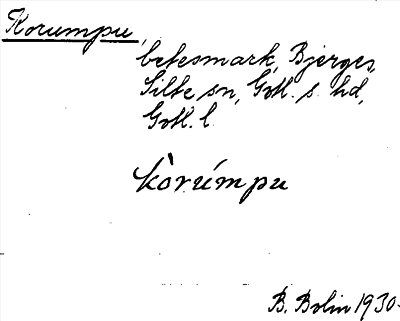 Korumpu,
betesmark, Bjerges,
Silte sn, Gotl. s. hd,
Gotl. l.
kòrúmpu
B. Bolin 1930.